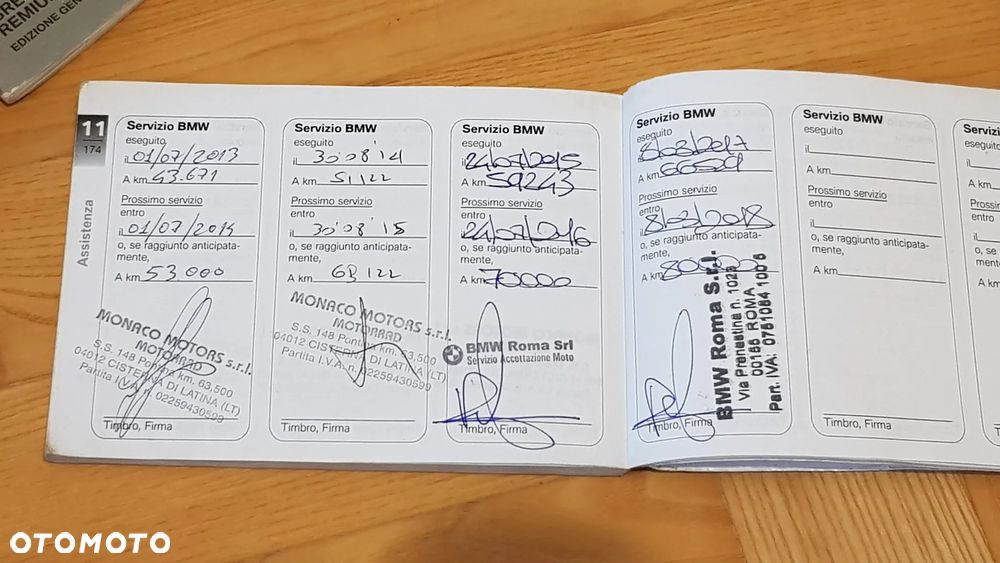 EDIZIONE
11
174
Assistenza
Servizio BMW
eseguito
il 01/07/2013
A km 43.671
Prossimo servizio
entro
il 01/07/2014
o, se raggiunto anticipata-
mente,
A km 53000
MONACO MOTORS s.r.l.
MOTORRAD
S.S. 148 Pontina km. 63,500
04012 CISTERNA DI LATINA (LT)
Partita I.V.A. n. 02259430599
Timbro, Firma
Servizio BMW
eseguito
il 30'08'14
A km 51122
Prossimo servizio
entro
il 30'08'15
o, se raggiunto anticipata-
mente,
A km 61122
MONACO MOTORS s.r.l.
MOTORRAD
S.S. 148 Pontina km. 63,500
04012 CISTERNA DI LATINA (LT)
Partita I.V.A. n. 02259430599
Timbro, Firma
Servizio BMW
eseguito
il 24/07/2015
A km 59243
Prossimo servizio
entro
il 24/07/2016
o, se raggiunto anticipata-
mente,
A km 70000
BMW Roma Srl
Servizio Accettazione Moto
Timbro, Firma
Servizio BMW
eseguito
il 8/03/2017
A km
Prossimo servizio
entro
il 8/03/2018
o, se raggiunto anticipata-
mente,
A km 80000
BMW Roma S.r.l.
Via Prenestina n. 1023
00155 ROMA
Part. IVA:
Timbro, Firma
Servizio BMW
eseguito
il
A km
Prossimo servizio
entro
il
o, se raggiunto anticipata-
mente,
A km
Timbro, Firma
eseguito
il
A km
entro
il
OTOMOTO